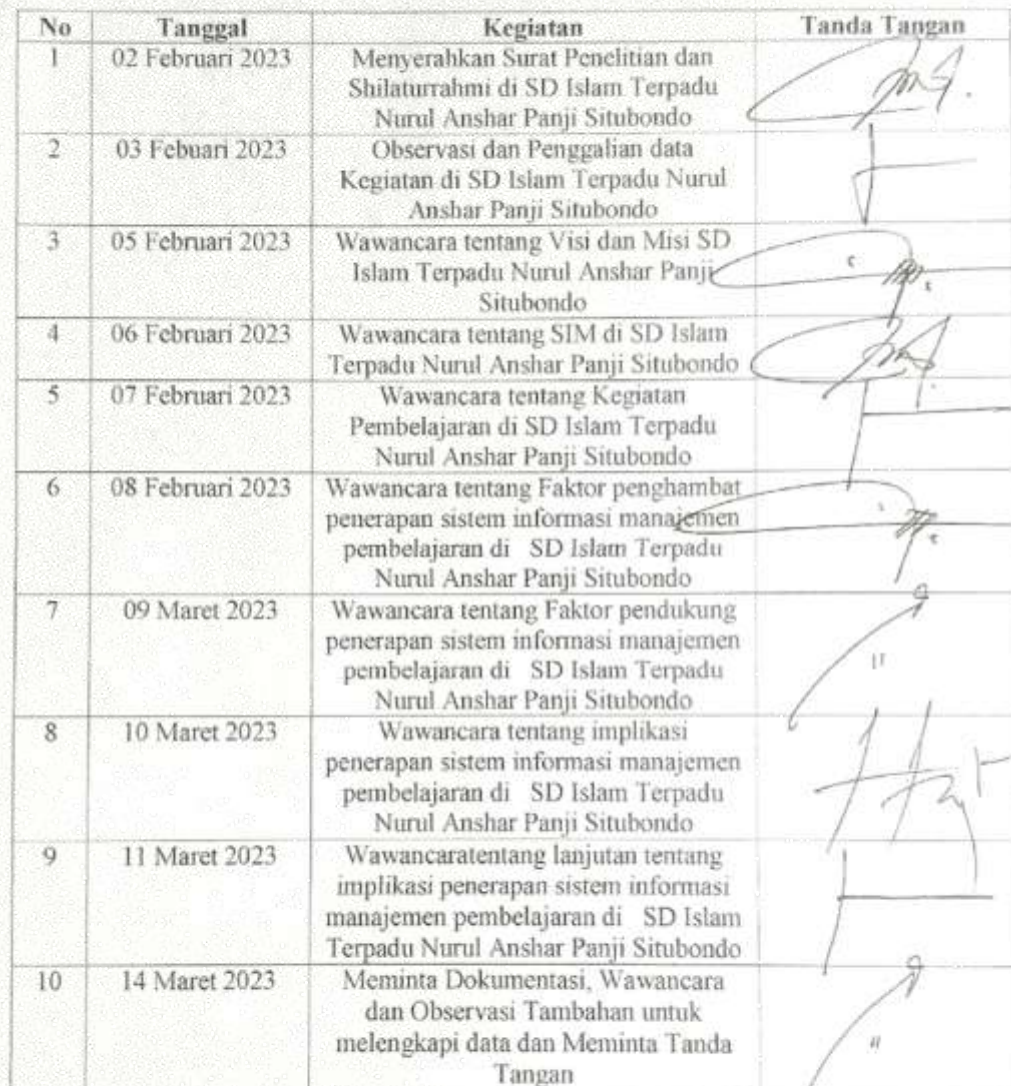 No Tanggal Kegiatan Tanda Tangan
1 02 Februari 2023 Menyerahkan Surat Penelitian dan
Shilaturrahmi di SD Islam Terpadu
Nurul Anshar Panji Situbondo
2 03 Febuari 2023 Observasi dan Penggalian data
Kegiatan di SD Islam Terpadu Nurul
Anshar Panji Situbondo
3 05 Februari 2023 Wawancara tentang Visi dan Misi SD
Islam Terpadu Nurul Anshar Panji
Situbondo
4 06 Februari 2023 Wawancara tentang SIM di SD Islam
Terpadu Nurul Anshar Panji Situbondo
5 07 Februari 2023 Wawancara tentang Kegiatan
Pembelajaran di SD Islam Terpadu
Nurul Anshar Panji Situbondo
6 08 Februari 2023 Wawancara tentang Faktor penghambat
penerapan sistem informasi manajemen
pembelajaran di SD Islam Terpadu
Nurul Anshar Panji Situbondo
7 09 Maret 2023 Wawancara tentang Faktor pendukung
penerapan sistem informasi manajemen
pembelajaran di SD Islam Terpadu
Nurul Anshar Panji Situbondo
8 10 Maret 2023 Wawancara tentang implikasi
penerapan sistem informasi manajemen
pembelajaran di SD Islam Terpadu
Nurul Anshar Panji Situbondo
9 11 Maret 2023 Wawancaratentang lanjutan tentang
implikasi penerapan sistem informasi
manajemen pembelajaran di SD Islam
Terpadu Nurul Anshar Panji Situbondo
10 14 Maret 2023 Meminta Dokumentasi, Wawancara
dan Observasi Tambahan untuk
melengkapi data dan Meminta Tanda
Tangan